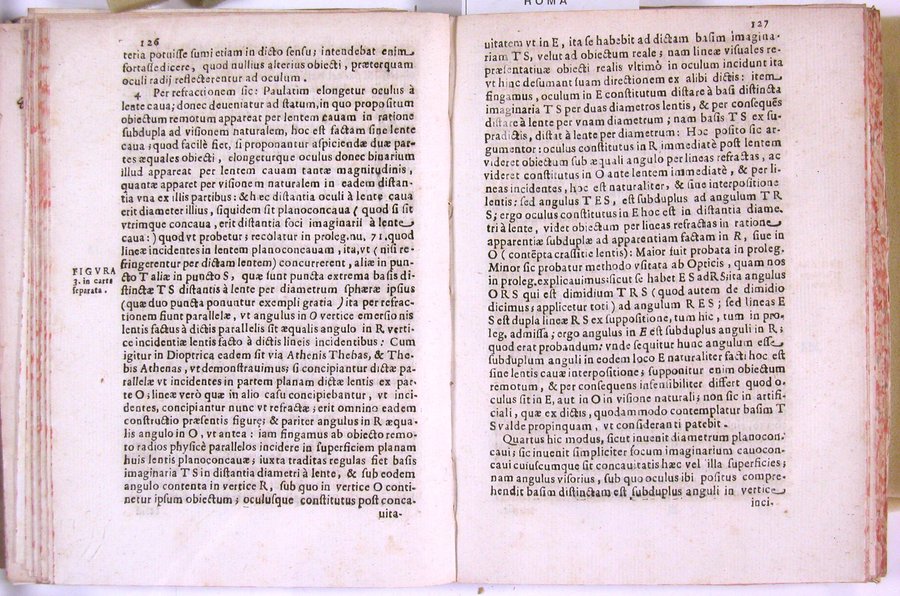 ROMA
126
teria potuisse sumi etiam in dicto sensu; intendebat enim
fortasse dicere, quod nullius alterius obiecti, præterquam
oculi radij reflecterentur ad oculum.
4 Per refractionem sic: Paulatim elongetur oculus à
lente caua; donec deueniatur ad statum, in quo propositum
obiectum remotum appareat per lentem cauam in ratione
subdupla ad visionem naturalem, hoc est factam sine lente
caua; quod facilè fiet, si proponantur aspiciendæ duæ par-
tes æquales obiecti, elongeturque oculus donec binarium
illud appareat per lentem cauam tantæ magnitudinis,
quantæ apparet per visionem naturalem in eadem distan-
tia vna ex illis partibus: & hæc distantia oculi à lente caua
erit diameter illius, siquidem sit planoconcaua (quod si sit
vtrimque concaua, erit distantia foci imaginarii à lente
caua:) quod vt probetur; recolatur in proleg. nu. 71. quod
lineæ incidentes in lentem planoconcauam, ita, vt (nisi re-
fringerentur per dictam lentem) concurrerent, aliæ in pun-
cto T aliæ in puncto S, quæ sunt puncta extrema basis di-
stinctæ TS distantis à lente per diametrum sphæræ ipsius
(quæ duo puncta ponuntur exempli gratia) ita per refrac-
tionem fiunt parallelæ, vt angulus in O vertice emersionis
lentis factus à dictis parallelis sit æqualis angulo in R verti-
ce incidentiæ lentis facto à dictis lineis incidentibus: Cum
igitur in Dioptrica eadem sit via Athenis Thebas, & The-
bis Athenas, vt demonstrauimus; si concipiantur dictæ pa-
rallelæ vt incidentes in partem planam dictæ lentis ex par-
te O; lineæ verò quæ in alio casu concipiebantur, vt inci-
dentes, concipiantur nunc vt refractæ; erit omnino eadem
constructio præsentis figuræ; & pariter angulus in R æqua-
lis angulo in O, vt antea: iam fingamus ab obiecto remo-
to radios physicè parallelos incidere in superficiem planam
huis lentis planoconcauæ; iuxta traditas regulas fiet basis
imaginaria TS in distantia diametri à lente, & sub eodem
angulo contenta in vertice R, sub quo in vertice O conti-
netur ipsum obiectum; oculusque constitutus post conca-
uita-
FIGVRA
3. in carta
separata.
127
uitatem vt in E, ita se habebit ad dictam basim imagina-
riam TS, velut ad obiectum reale; nam lineæ visuales re-
præsentatiuæ obiecti realis vltimò in oculum incidunt ita
vt hinc desumant suam directionem ex alibi dictis: item
fingamus, oculum in E constitutum distare à basi distincta
imaginaria TS per duas diametros lentis, & per consequēs
distare à lente per vnam diametrum; nam basis TS ex su-
pradictis, distat à lente per diametrum: Hoc posito sic ar-
gumentor: oculus constitutus in R immediatè post lentem
videret obiectum sub æquali angulo per lineas refractas, ac
videret constitutus in O ante lentem immediatè, & per li-
neas incidentes, hoc est naturaliter, & sine interpositione
lentis: sed angulus TES, est subduplus ad angulum TR
S; ergo oculus constitutus in E hoc est in distantia diame-
tri à lente, videt obiectum per lineas refractas in ratione
apparentiæ subduplæ ad apparentiam factam in R, siue in
O (contēpta crassitie lentis): Maior fuit probata in proleg.
Minor sic probatur methodo vsitata ab Opticis, quam nos
in proleg. explicauimus: sicut se habet ES ad RS ita angulus
ORS qui est dimidium TRS (quod autem de dimidio
dicimus; applicetur toti) ad angulum RES; sed lineas E
S est dupla lineæ RS ex suppositione, tum hic, tum in pro-
leg. admissa; ergo angulus in E est subduplus anguli in R;
quod erat probandum: vnde sequitur hunc angulum esse
subduplum anguli in eodem loco E naturaliter facti hoc est
sine lentis cauæ interpositione; supponitur enim obiectum
remotum, & per consequens insensibiliter differt quod o-
culus sit in E, aut in O in visione naturali; non sic in artifi-
ciali, quæ ex dictis, quodammodo contemplatur basim T
S valde propinquam, vt consideranti patebit.
Quartus hic modus, sicut inuenit diametrum planocon-
caui; sic inuenit simpliciter focum imaginarium cauocon-
caui cuiuscumque sit concauitatis hæc vel illa superficies;
nam angulus visorius, sub quo oculus ibi positus compre-
hendit basim distinctam est subduplus anguli in vertice
inci-